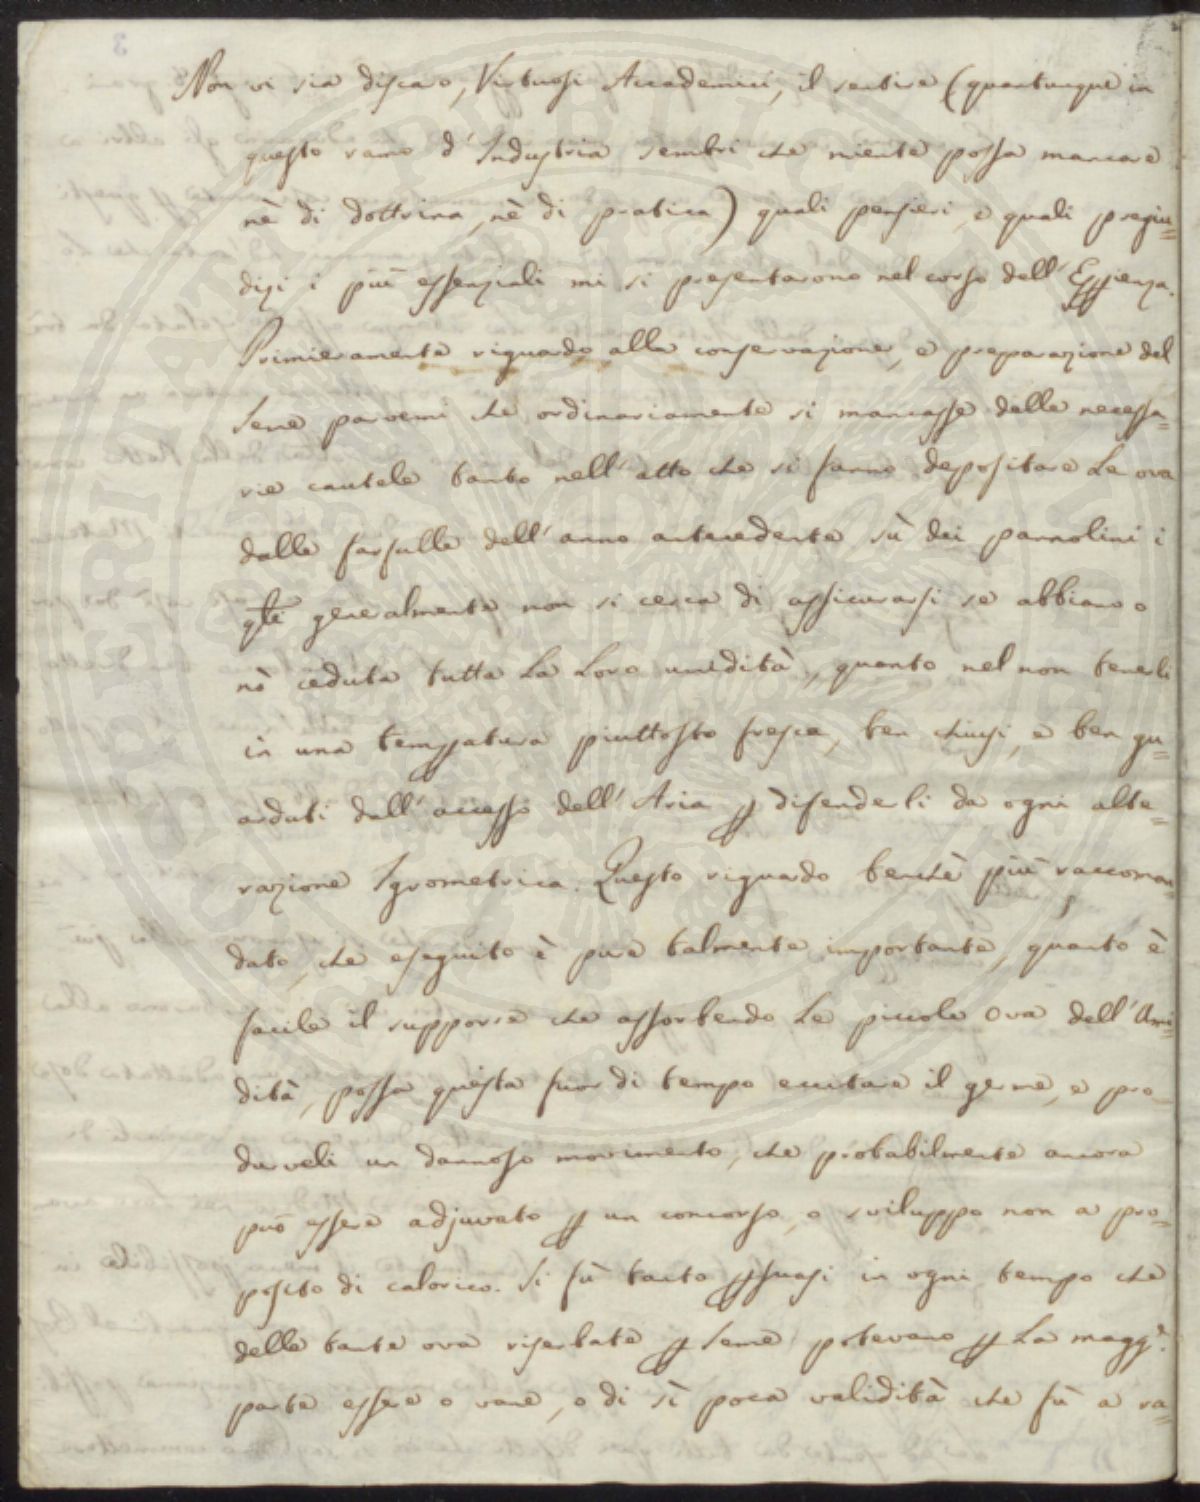 Non vi sia discaro, Virtuosi Accademici, il sentire (quantunque in
questo ramo d'Industria sembri che niente possa mancare
nè di dottrina, nè di pratica) quali pensieri, e quali pregiu=
dizi i più essenziali mi si presentarono nel corso dell'Esperienza.
Primieramente riguardo alla conservazione, e preparazione del
Seme parvemi che ordinariamente si mancasse delle necessa=
rie cautele tanto nell'atto che si fanno depositare Le ova
dalle farfalle dell'anno antecedente sù dei pannolini i
qli generalmente non si cerca di assicurarsi se abbiano o
nò ceduta tutta La Loro umidità, quanto nel non tenerli
in una temperatura piuttosto fresca, ben chiusi, e ben gu=
ardati dall'accesso dell'Aria p difenderli da ogni alte=
razione Igrometrica. Questo riguardo benchè più raccoman=
dato, che eseguito è pure talmente importante, quanto è
facile il supporre che assorbendo Le piccole Ova dell'Umi=
dità, possa questa fuor di tempo eccitare il germe, e pro=
durveli un dannoso movimento, che probabilmente ancora
può essere adjuvato p un concorso, o sviluppo non a pro=
posito di calorico. Si fù tanto psuasi in ogni tempo che
delle tante ova riserbate p Seme potevano p La magg.e
parte essere o vane, o di sì poca validità che fù a ra=